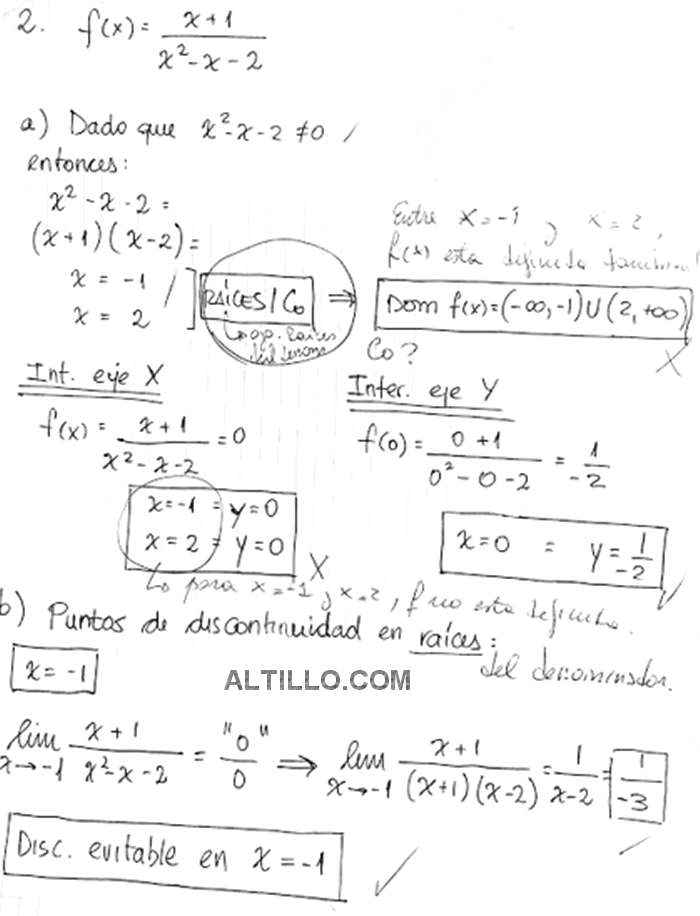 2. f(x) = x+1 / x²-x-2
a) Dado que x²-x-2 ≠0 /
entonces:
x² - x - 2 =
(x+1)(x-2) =
x = -1
x = 2
RAÍCES / C₀ ⇒
Entre x=-1 y x=2,
f(x) esta definida también!
Dom f(x) = (-∞,-1) U (2,+∞)
X
Co?
Int. eje X
f(x) = x+1 / x²-x-2 = 0
x=-1 = y=0
x=2 = y=0
X
Inter. eje Y
f(0) = 0+1 / 0²-0-2 = 1/-2
x=0 = y= 1/-2
para x=-1 y x=2, f no esta definida.
b) Puntos de discontinuidad en raíces:
del denominador.
x = -1
ALTILLO.COM
lim x→-1 x+1 / x²-x-2 = "0" / 0 ⇒ lim x→-1 x+1 / (x+1)(x-2) = 1 / x-2 = 1 / -3
Disc. evitable en x = -1 ✓